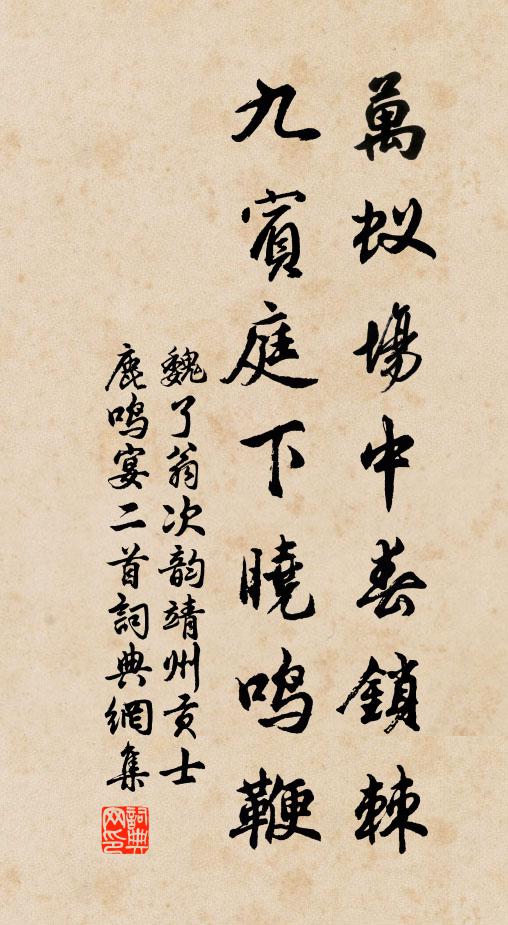 萬蚁場中春鎖棘
九賓庭下曉鳴鞭
魏了翁次韵靖州贡士
鹿鸣宴二首詞典網集
詞典网印